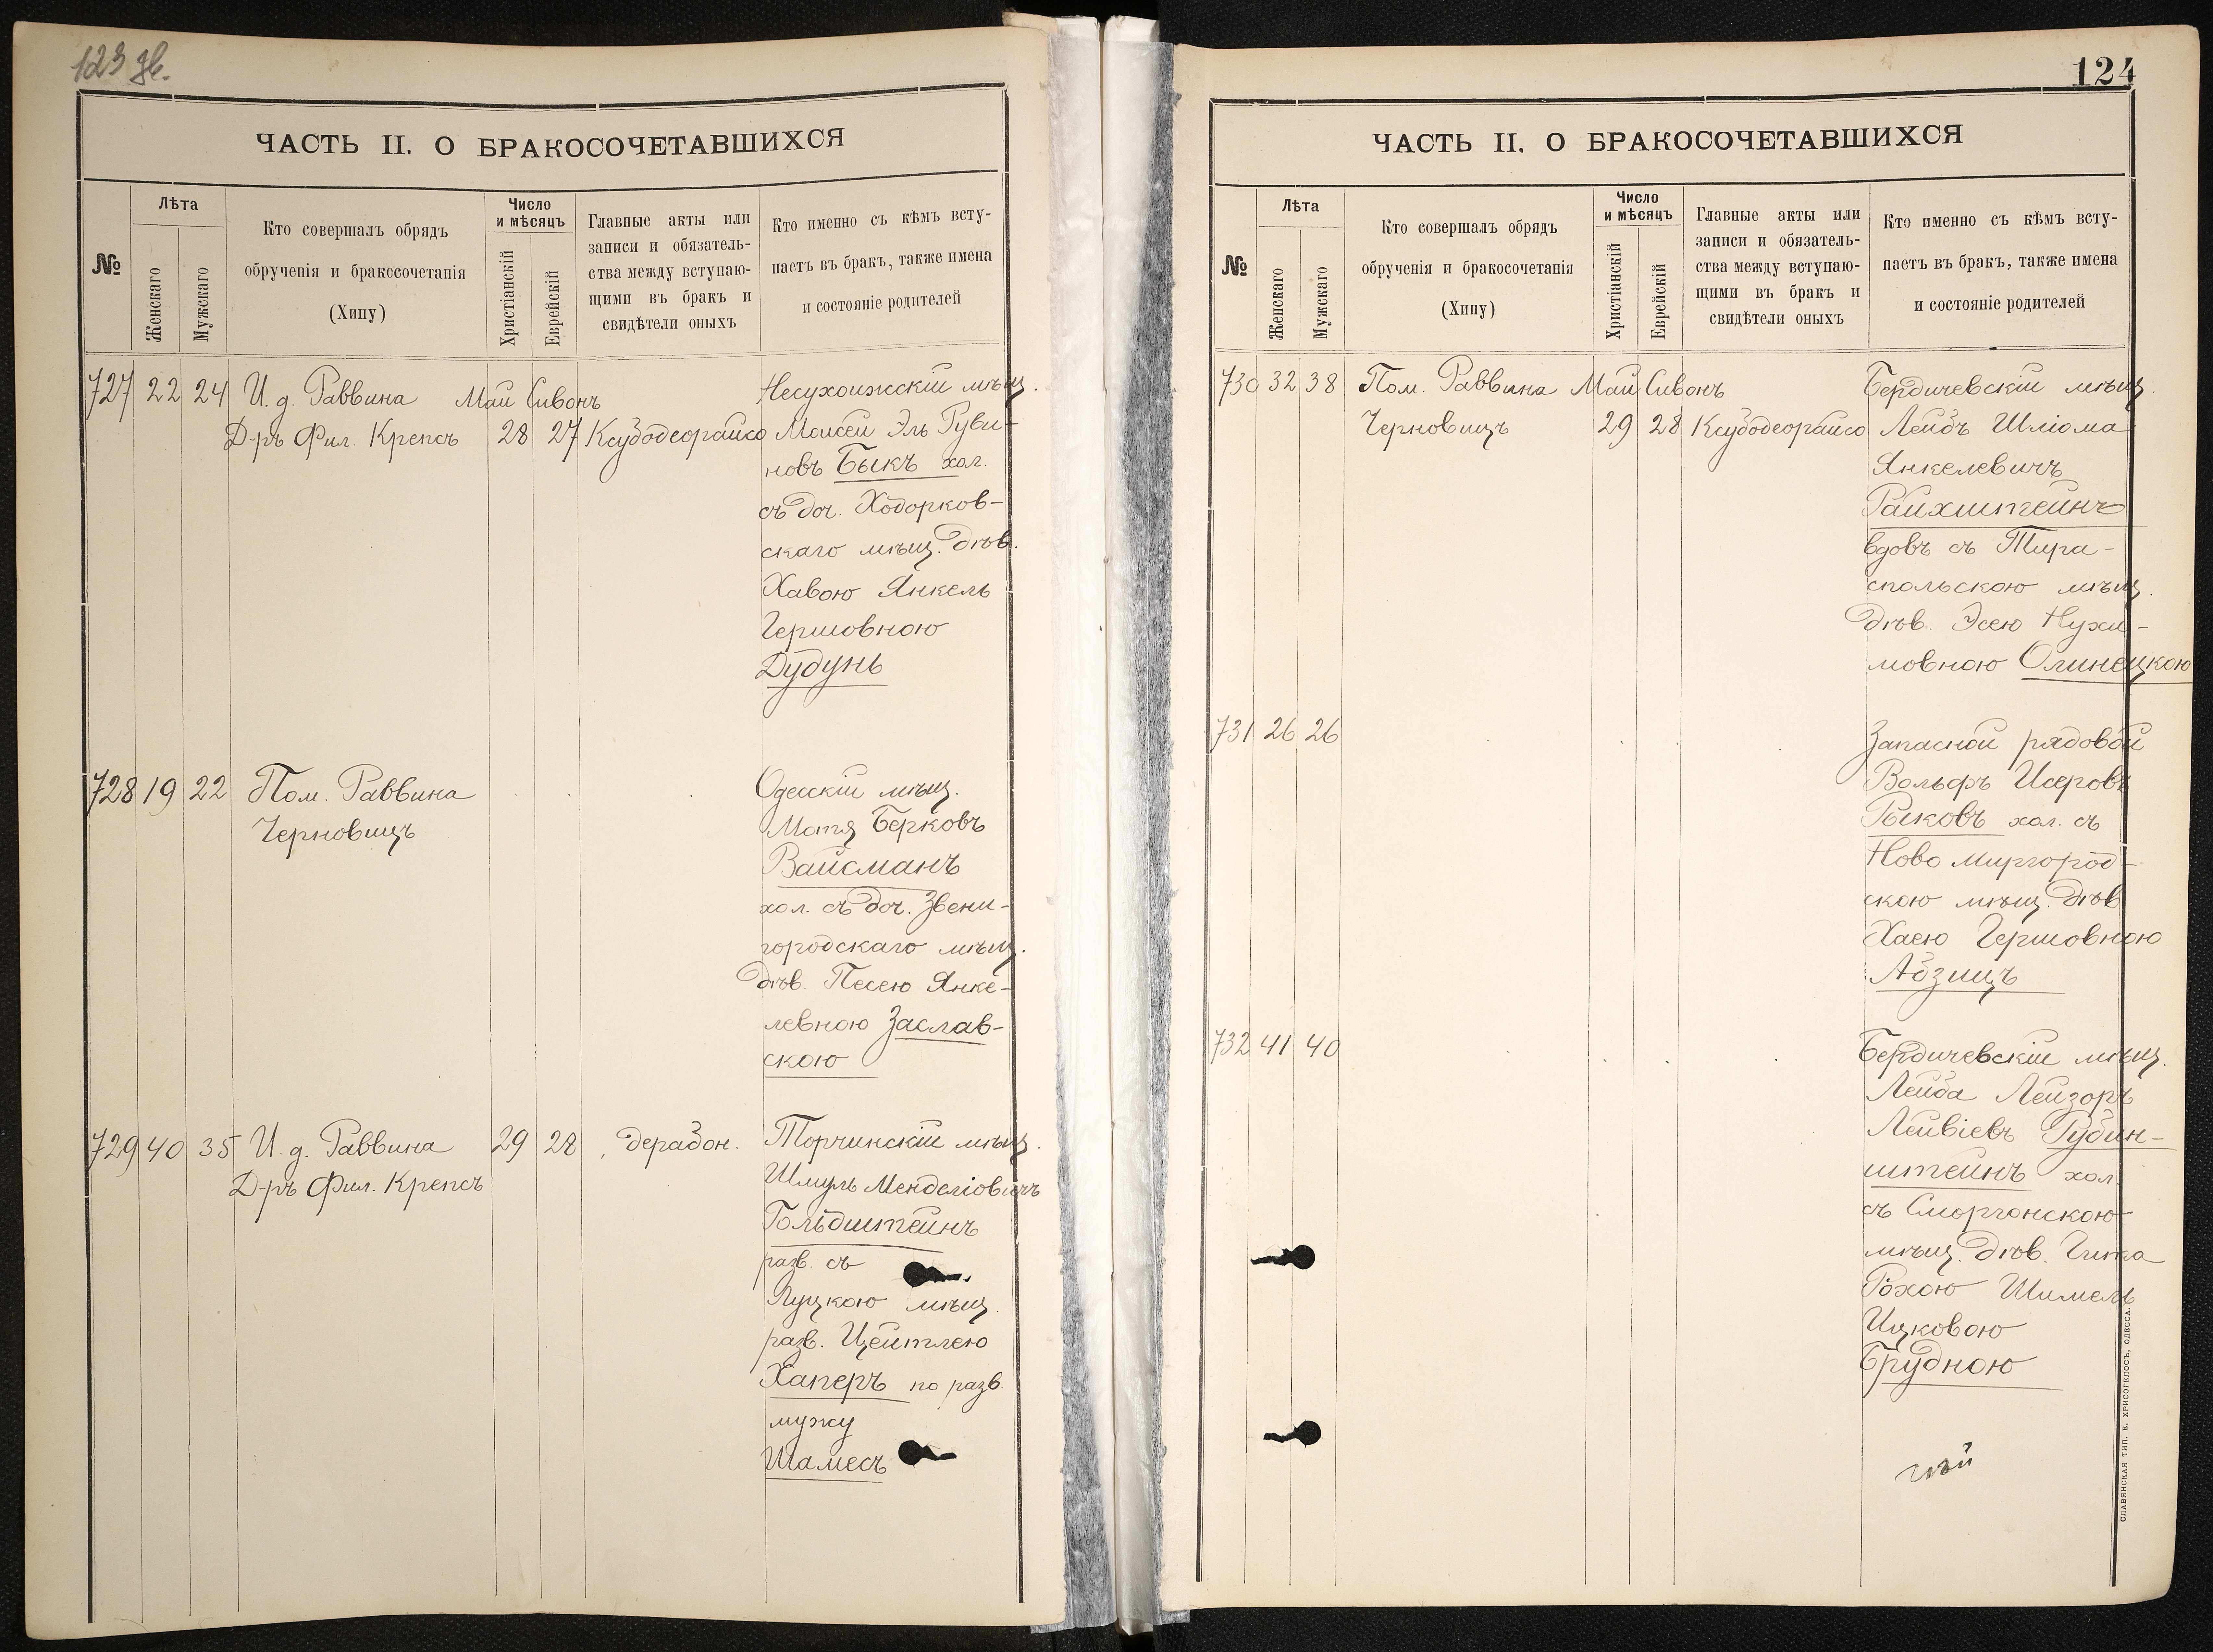 123 зв.
ЧАСТЬ II. О БРАКОСОЧЕТАВШИХСЯ
№
Лѣта
Женскаго
Мужскаго
Кто совершалъ обрядъ
обрученія и бракосочетанія
(Хипу)
Число
и мѣсяцъ
Христіанскій
Еврейскій
Главные акты или
записи и обязатель-
ства между вступаю-
щими въ бракъ и
свидѣтели оныхъ
Кто именно съ кѣмъ всту-
паетъ въ бракъ, также имена
и состояніе родителей
727 22 24 И. д. Раввина Май Сивонъ
Д-ръ Фил. Крепсъ 28 27 Ксубодеорайсо
Несухоижскій мѣщ.
Моисей Эль Руви-
новъ Быкъ хол.
съ доч. Ходорков-
скаго мѣщ. дѣв.
Хавою Янкель
Гершовною
Дудунь
728 19 22 Пом. Раввина
Черновицъ
Одесскій мѣщ.
Мотя Берковъ
Вайсманъ
хол. съ доч. Звени-
городскаго мѣщ.
дѣв. Песею Янке-
левною Заслав-
скою
729 40 35 И. д. Раввина 29 28 дерабон.
Д-ръ Фил. Крепсъ
Торчинскій мѣщ.
Шмуль Менделіовичъ
Гольдштейнъ
разв. съ
Луцкою мѣщ.
разв. Цейтлею
Хаперъ по разв.
мужу
Шамесъ
124
ЧАСТЬ II. О БРАКОСОЧЕТАВШИХСЯ
№
Лѣта
Женскаго
Мужскаго
Кто совершалъ обрядъ
обрученія и бракосочетанія
(Хипу)
Число
и мѣсяцъ
Христіанскій
Еврейскій
Главные акты или
записи и обязатель-
ства между вступаю-
щими въ бракъ и
свидѣтели оныхъ
Кто именно съ кѣмъ всту-
паетъ въ бракъ, также имена
и состояніе родителей
730 32 38 Пом. Раввина Май Сивонъ
Черновицъ 29 28 Ксубодеорайсо
Бердичевскій мѣщ.
Лейбъ Шліома
Янкелевичъ
Райхштейнъ
вдовъ съ Тира-
спольскою мѣщ.
дѣв. Эсею Нухи-
мовною Олинецкою
731 26 26
Запасной рядовой
Вольфъ Исеровъ
Рыковъ хол. съ
Ново Миргород-
скою мѣщ. дѣв
Хаею Гершовною
Абзицъ
732 41 40
Бердичевскій мѣщ.
Лейба Лейзоръ
Лейвіевъ Рубин-
штейнъ хол.
съ Сморгонскою
мѣщ. дѣв. Гита
Рохою Шимель
Ицковою
Брудною
СЛАВЯНСКАЯ ТИП. Е. ХРИСОГЕЛОСЪ, ОДЕССА.